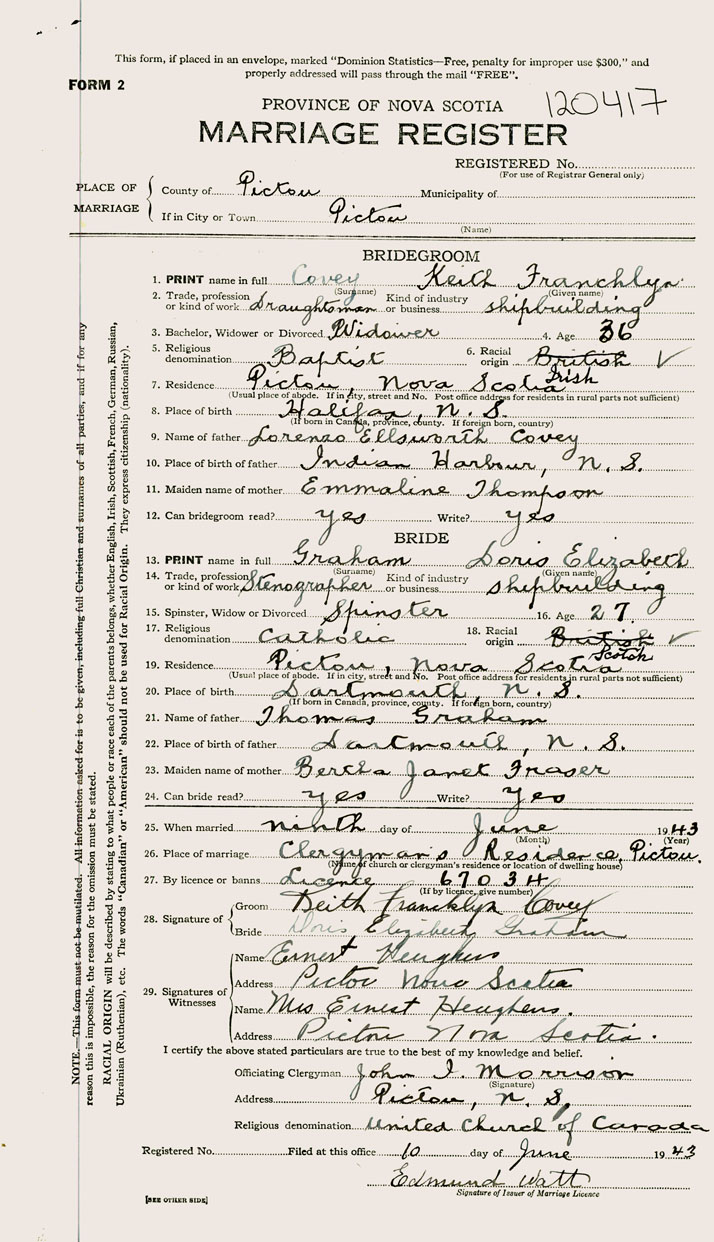 This form, if placed in an envelope, marked "Dominion Statistics—Free, penalty for improper use $300," and
properly addressed will pass through the mail "FREE".
FORM 2
PROVINCE OF NOVA SCOTIA 120417
MARRIAGE REGISTER
REGISTERED No.
(For use of Registrar General only)
PLACE OF MARRIAGE
County of Pictou Municipality of
If in City or Town Pictou
(Name)
BRIDEGROOM
1. PRINT name in full Covey Keith Francklyn
(Surname) (Given name)
2. Trade, profession or kind of work Draughtsman Kind of industry or business shipbuilding
3. Bachelor, Widower or Divorced Widower 4. Age 36
5. Religious denomination Baptist 6. Racial origin British ✓
Irish
7. Residence Pictou, Nova Scotia
(Usual place of abode. If in city, street and No. Post office address for residents in rural parts not sufficient)
8. Place of birth Halifax, N. S.
(If born in Canada, province, county. If foreign born, country)
9. Name of father Lorenzo Ellsworth Covey
10. Place of birth of father Indian Harbour, N. S.
11. Maiden name of mother Emmaline Thompson
12. Can bridegroom read? yes Write? yes
BRIDE
13. PRINT name in full Graham Doris Elizabeth
(Surname) (Given name)
14. Trade, profession or kind of work Stenographer Kind of industry or business shipbuilding
15. Spinster, Widow or Divorced Spinster 16. Age 27.
17. Religious denomination Catholic 18. Racial origin British ✓
Scotch
19. Residence Pictou, Nova Scotia
(Usual place of abode. If in city, street and No. Post office address for residents in rural parts not sufficient)
20. Place of birth Dartmouth, N. S.
(If born in Canada, province, county. If foreign born, country)
21. Name of father Thomas Graham
22. Place of birth of father Dartmouth, N. S.
23. Maiden name of mother Bertha Janet Fraser
24. Can bride read? yes Write? Yes
25. When married ninth day of June 1943
(Month) (Year)
26. Place of marriage Clergyman's Residence, Pictou.
(Name of church or clergyman's residence or location of dwelling house)
27. By licence or banns Licence 67034
(If by licence, give number)
28. Signature of
Groom Keith Francklyn Covey
Bride Doris Elizabeth Graham
29. Signatures of Witnesses
Name Ernest Heughens
Address Pictou Nova Scotia
Name Mrs Ernest Heughens.
Address Pictou Nova Scotia.
I certify the above stated particulars are true to the best of my knowledge and belief.
Officiating Clergyman John I. Morrison
(Signature)
Address Pictou, N. S,
Religious denomination United Church of Canada
Registered No. Filed at this office 10 day of June 1943
Edmund Watt
Signature of Issuer of Marriage Licence
[SEE OTHER SIDE]
NOTE.—This form must not be mutilated. All information asked for is to be given, including full Christian and surnames of all parties, and if for any
reason this is impossible, the reason for the omission must be stated.
RACIAL ORIGIN will be described by stating to what people or race each of the parents belongs, whether English, Irish, Scottish, French, German, Russian,
Ukrainian (Ruthenian), etc. The words "Canadian" or "American" should not be used for Racial Origin. They express citizenship (nationality).